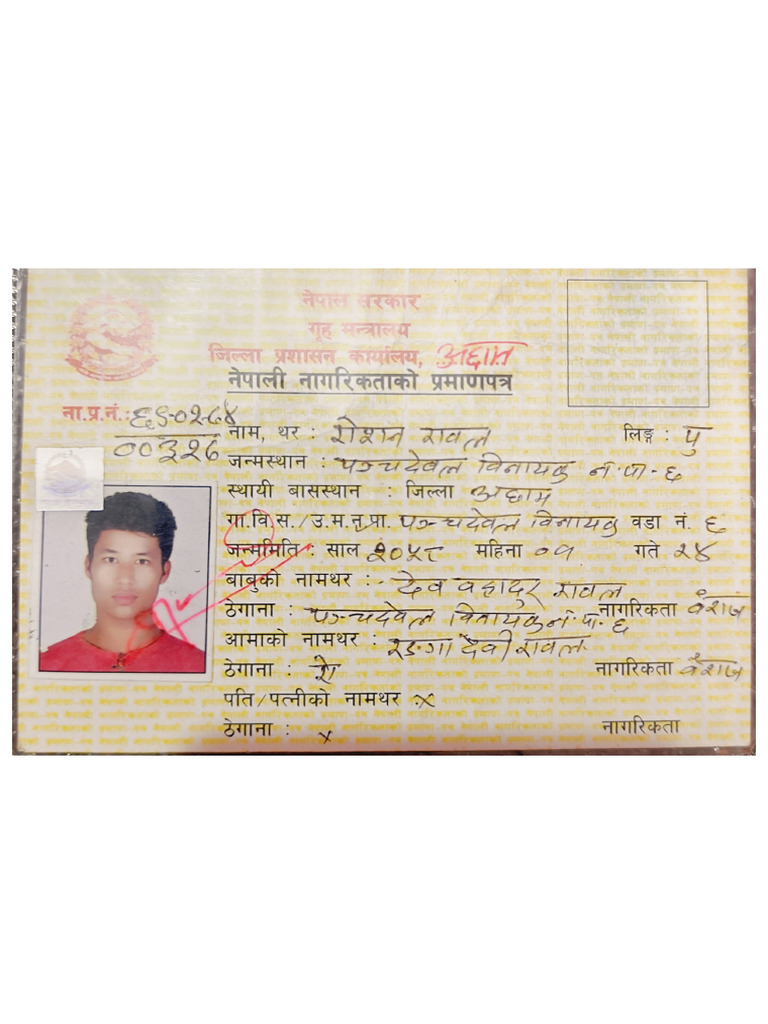 नेपाल सरकार
गृह मन्त्रालय
जिल्ला प्रशासन कार्यालय, अछाम
नेपाली नागरिकताको प्रमाणपत्र
ना.प्र.नं.:
नाम, थर : रोशन रावल लिङ्ग : पु
जन्मस्थान : पञ्चदेवल विनायक न.पा-६
स्थायी बासस्थान : जिल्ला अछाम
गा.वि.स./उ.म.न.पा. पञ्चदेवल विनायक वडा नं. ६
जन्ममिति : साल २०५८ महिना ०१ गते २४
बाबुको नामथर :- देव बहादुर रावल
ठेगाना : पञ्चदेवल विनायक न.पा-६ नागरिकता वंशज
आमाको नामथर : रङगा देवी रावल
ठेगाना : नागरिकता वंशज
पति/पत्नीको नामथर : x
ठेगाना : x नागरिकता